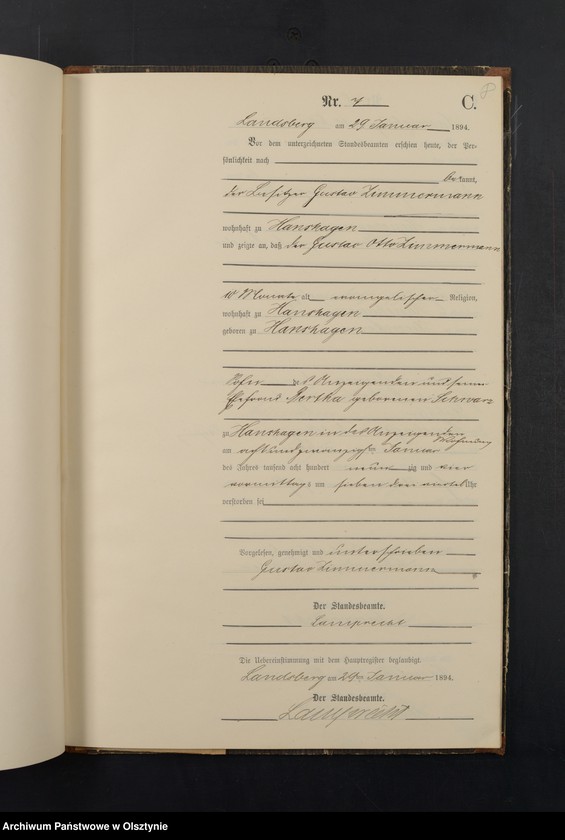 8
Nr. 7 C.
Landsberg am 29 Januar 1894.
Vor dem unterzeichneten Standesbeamten erschien heute, der Per-
sönlichkeit nach
bekannt,
der Besitzer Gustav Zimmermann
wohnhaft zu Hanshagen
und zeigte an, daß der Gustav Otto Zimmermann
10 Monate alt evangelischer Religion,
wohnhaft zu Hanshagen
geboren zu Hanshagen
Sohn des Anzeigenden und seiner
Ehefrau Bertha geborenen Schwarz
zu Hanshagen in des Anzeigenden
Wohnung
am achtundzwanzigsten Januar
des Jahres tausend acht hundert neunzig und vier
vormittags um sieben drei viertel Uhr
verstorben sei
Vorgelesen, genehmigt und unterschrieben
Gustav Zimmermann
Der Standesbeamte.
Lamprecht
Die Uebereinstimmung mit dem Hauptregister beglaubigt.
Landsberg am 29 Januar 1894.
Der Standesbeamte.
Lamprecht
Archiwum Państwowe w Olsztynie